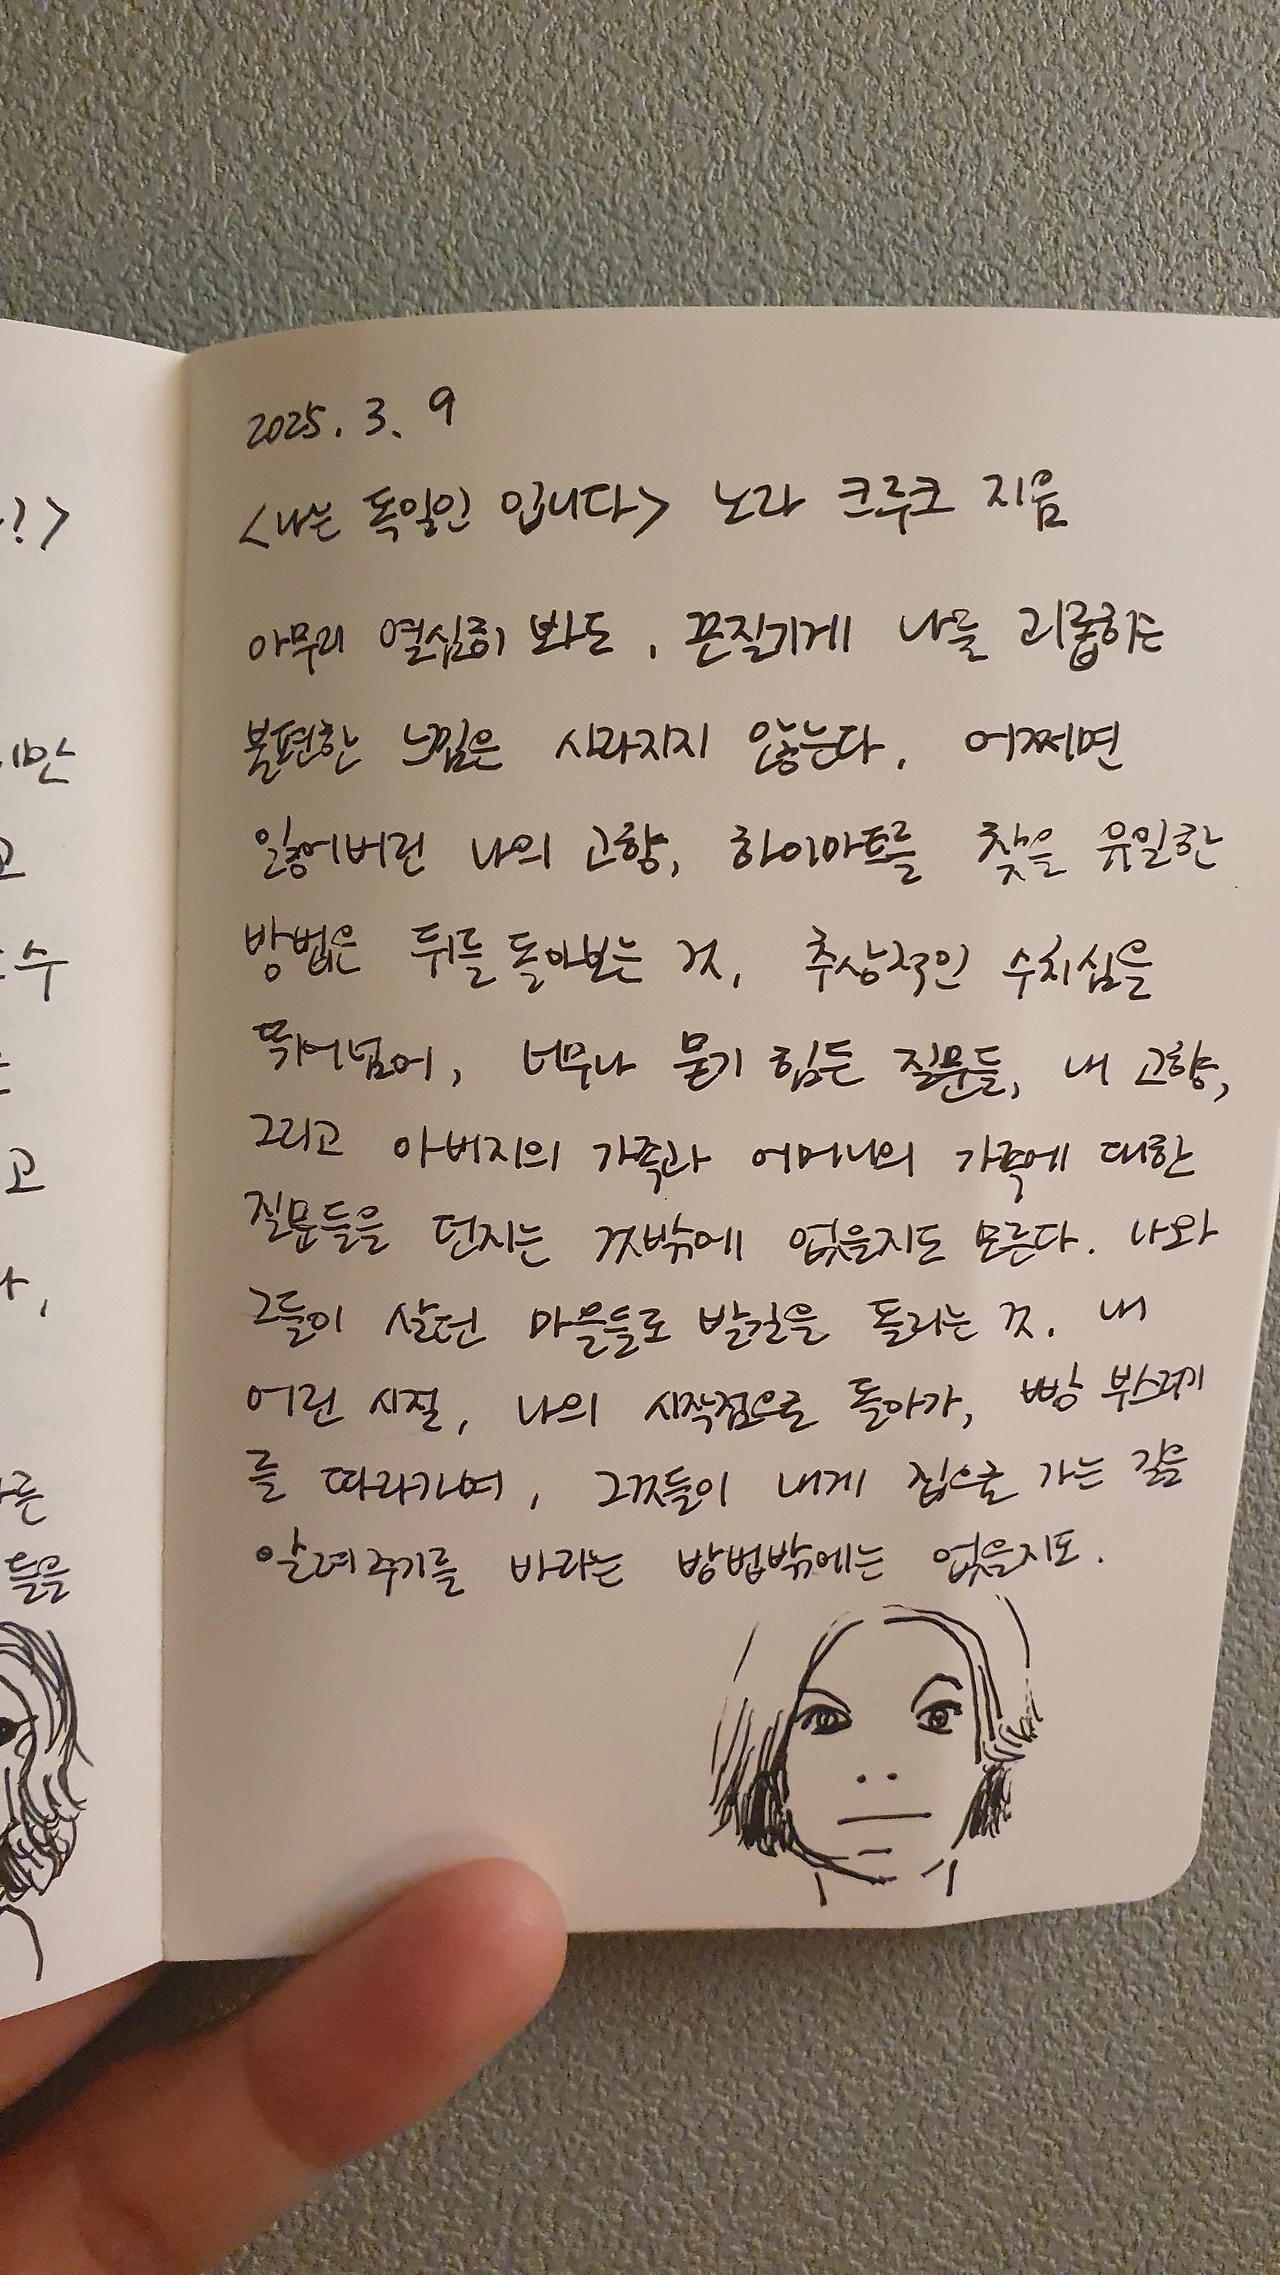 2025. 3. 9
<나는 독일인 입니다> 노라 크루크 지음
아무리 열심히 봐도, 끈질기게 나를 괴롭히는
불편한 느낌은 사라지지 않는다. 어쩌면
잃어버린 나의 고향, 하이마트를 찾을 유일한
방법은 뒤를 돌아보는 것, 추상적인 수치심을
뛰어넘어, 너무나 묻기 힘든 질문들, 내 고향,
그리고 아버지의 가족과 어머니의 가족에 대한
질문들을 던지는 것밖에 없을지도 모른다. 나와
그들이 살던 마을들로 발길을 돌리는 것. 내
어린 시절, 나의 시작점으로 돌아가, 빵 부스러기
를 따라가며, 그것들이 내게 집으로 가는 길을
알려주기를 바라는 방법밖에는 없을지도.
?>
만
고
수
고
른
들을